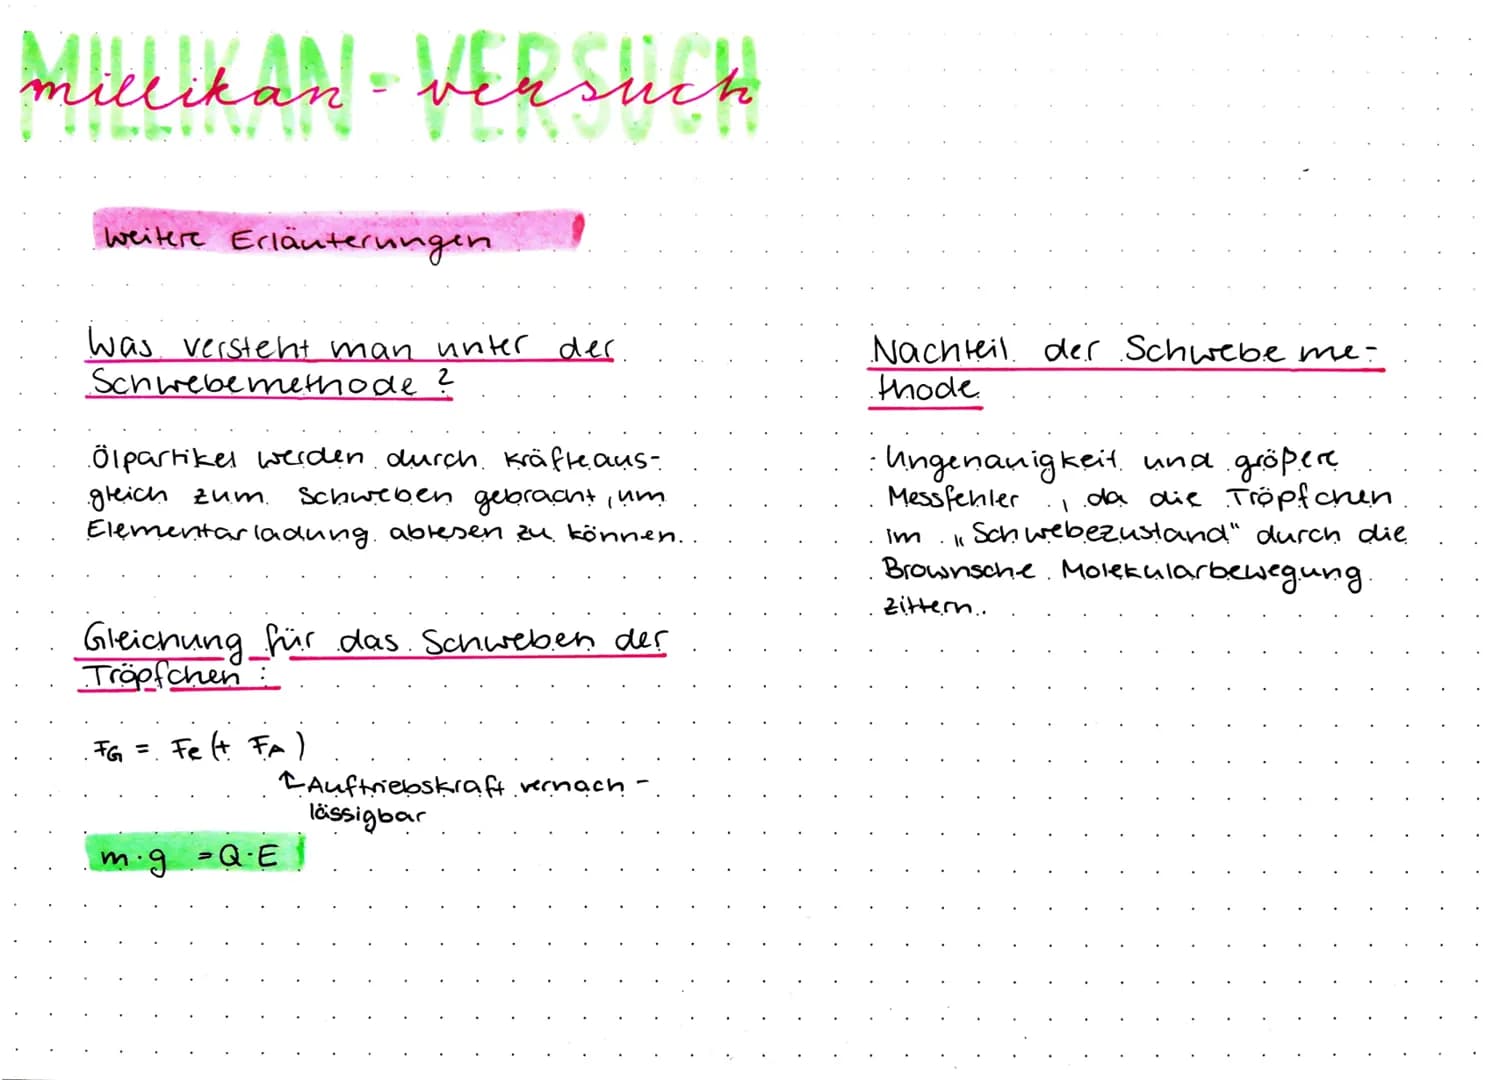 MILLIKAN-VERSUCH
millikan-versuch
weitere Erläuterungen
Was versteht man unter der
Schwebemethode?
Ölpartikel werden durch Kräfteaus-
gleich zum Schweben gebracht, um
Elementarladung ablesen zu können.
Gleichung für das Schweben der
Tröpfchen:
FG = Fe (+ FA)
↑Auftriebskraft vernach-
lässigbar
m·g = Q·E
Nachteil der Schwebeme-
thode
- Ungenauigkeit und größere
Messfehler, da die Tröpfchen
im „Schwebezustand" durch die
Brownsche Molekularbewegung
zittern.